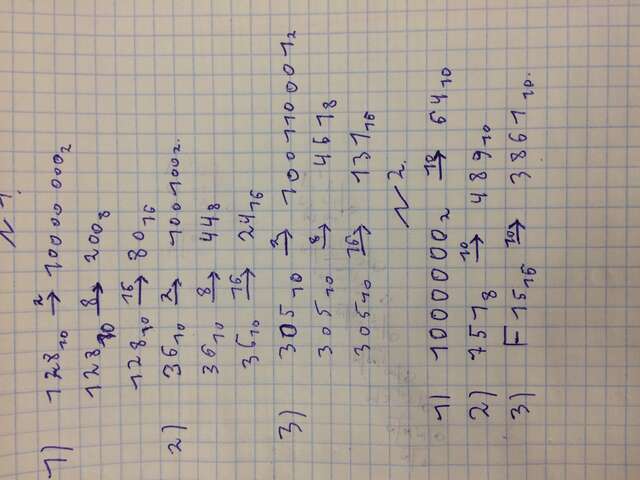 №1.
1) 128₁₀ →² 10000000₂
128₁₀ →⁸ 200₈
128₁₀ →¹⁶ 80₁₆
2) 36₁₀ →² 100100₂.
36₁₀ →⁸ 44₈
36₁₀ →¹⁶ 24₁₆
3) 305₁₀ →² 100110001₂
305₁₀ →⁸ 461₈
305₁₀ →¹⁶ 131₁₆
№2.
1) 1000000₂ →¹⁰ 64₁₀
2) 751₈ →¹⁰ 489₁₀
3) F15₁₆ →¹⁰ 3861₁₀.